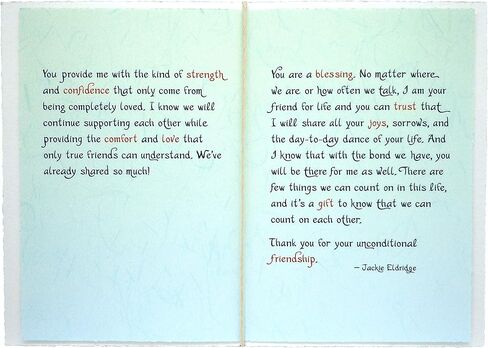 You provide me with the kind of strength
and confidence that only come from
being completely loved. I know we will
continue supporting each other while
providing the comfort and love that
only true friends can understand. We've
already shared so much!
You are a blessing. No matter where
we are or how often we talk, I am your
friend for life and you can trust that
I will share all your joys, sorrows, and
the day-to-day dance of your life. And
I know that with the bond we have, you
will be there for me as well. There are
few things we can count on in this life,
and it's a gift to know that we can
count on each other.
Thank you for your unconditional
friendship.
– Jackie Eldridge